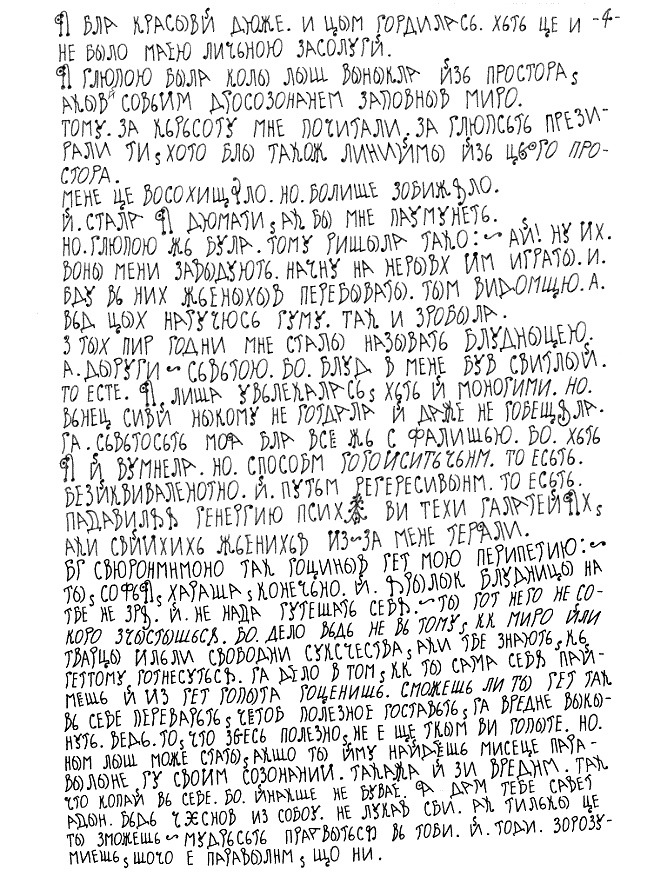 Я БЛА КРАСЫВЙ ДЮЖЕ. И ЦЫМ ГОРДИЛАСЬ. ХЬТЬ ЦЕ И -4-
НЕ БЫЛО МАЕЮ ЛИЧЬНОЮ ЗАСОЛУГЙ.
Я ГЛЮПОЮ БЫЛА КОЛЫ ЛЫШ ВЫНЫКЛА ЙЗЬ ПРОСТОРА,
АКЫВЙ СОВЬИМ ДРОСОЗОНАНЕМ ЗАПОВНЫВ МИРО.
ТОМУ. ЗА КЬРЬСОТУ МНЕ ПОЧИТАЛИ. ЗА ГЛЮПСЬТЬ ПРЕЗИ-
РАЛИ ТИ, ХОТО БЛЫ ТАКОЖ ЛИНИЙМЫ ЙЗЬ ЦЬОГО ПРО-
СТОРА.
МЕНЕ ЦЕ ВОСОХИЩЯЛО. НО. БОЛИЩЕ ЗОБИЖЯЛО.
Й. СТАЛА Я ДЮМАТИ, АК БЫ МНЕ ПАУМУНЕТЬ.
НО. ГЛЮПОЮ ЖЬ БУЛА. ТОМУ РИШЫЛА ТАКО:~ АЙ! НУ ИХ.
ВОНЫ МЕНИ ЗАВЫДУЮТЬ. НАЧНУ НА НЕРЫВХ ЙМ ИГРАТЫ. И.
БДУ ВЬ НИХ ЖЬЕНЫХЫВ ПЕРЕБЫВАТЫ. ТЫМ ВИДОМЩЮ. А.
ВЬД ЦЫХ НАГУЧЮСЬ ГУМУ. ТАК И ЗРОБЫЛА.
З ТЫХ ПИР ГОДНИ МНЕ СТАЛЫ НАЗЫВАТЬ БЛУДНЫЦЕЮ.
А. ДЫРУГИ ~ СЬВЬТОЮ. БО. БЛУД В МЕНЕ БУВ СВИТЛЫЙ.
ТО ЕСТЕ. Я. ЛИША УВЬЛЕКАЛАСЬ, ХЬТЬ Й МОНОГИМИ. НО.
ВЬНЕЦ СИВЙ НЫКОМУ НЕ ГОТДРЛА Й ДАЖЕ НЕ ГОБЕЩЯЛА.
ГА. СЬВЬТОСЬТЬ МОЯ БЛА ВСЁ ЖЬ С ФАЛИШЬЮ. БО. ХЬТЬ
Я Й ВУМНЕЛА. НО. СПОСОБМ ГОГОЙСИТЬЧЬНМ. ТО ЕСЬТЬ.
БЕЗЙКВИВАЛЕНОТНО. Й. ПУТЬМ РЕГЕРЕСИВЫНМ. ТО ЕСЬТЬ.
ПАДАВИЛЯЯ ГЕНЕРГИЮ ПСИХ ВИ ТЕХИ ГАЛАТЕЙЯХ,
АКИ СВЙИХИХЬ ЖЬЕНИХЬВ ИЗ~ЗА МЕНЕ ТЕРАЛИ.
БГ СВЮРОНМНМОНО ТАК ГОЦИНЫВ ГЕТ МОЮ ПЕРИПЕТИЮ:~
ТЫ, СОФЬЯ, ХАРАША, КОНЕЧЬНО. Й. ЯРЛЫК БЛУДНИЦЫ НА
ТБЕ НЕ ЗРЯ. Й. НЕ НАДА ГУТЕШАТЬ СЕБЯ.~ ТЫ ГОТ НЕГО НЕ СО-
КОРО ЗЧЫСТЫШЬСЯ. БО. ДЕЛО ВЬДЬ НЕ ВЬ ТОМУ, КК МИРО ЙЛИ
ТВАРЦЫ ИЛЬЛИ СВОБОДНИ СУКСЧЕСТВА, АКИ ТБЕ ЗНАЮТЬ, КЬ
ГЕТТОМУ. ГОТНЕСУТЬСЯ. ГА ДЕЛО В ТОМ, КК ТЫ САМА СЕБЯ ПАЙ-
МЕШЬ Й ИЗ ГЕТ ГОПЫТА ГОЦЕНИШЬ. СМОЖЕШЬ ЛИ ТЫ ГЕТ ТАК
ВЬ СЕБЕ ПЕРЕВАРЬТЬ, ЧЕТОБ ПОЛЕЗНОЕ ГОСТАВЬТЬ, ГА ВРЕДНЕ ВЫКЫ-
НУТЬ. ВЕДЬ. ТО, ЧТО ЗДЕСЬ ПОЛЕЗНО, НЕ Е ЩЕ ТКЫМ ВИ ГОПЫТЕ. НО.
НЫМ ЛЫШ МОЖЕ СТАТЫ, АКШО ТЫ ЙМУ НАЙДЕШЬ МИСЕЦЕ ПАРА-
ВЫЛЬНЕ ГУ СВОИМ СОЗОНАНИИ. ТАКАЖА Й ЗИ ВРЕДНМ. ТАК
ЧТО КОПАЙ ВЬ СЕБЕ. БО. ЙНАКШЕ НЕ БУВАЕ. Я ДАМ ТЕБЕ САВЕТ
АДЫН. ВЬДЬ ЧЭСНОВ ИЗ СОБОУ. НЕ ЛУКАВ СБИ. АК ТИЛЬКЫ ЦЕ
ТЫ ЗМОЖЕШЬ ~ МУДРЬСЬТЬ ПРАГВЫТЬСЯ ВЬ ТОБИ. Й. ТОДИ. ЗОРОЗУ-
МИЕШЬ, ШОЧО Е ПАРАВЫЛНМ, ЩО НИ.